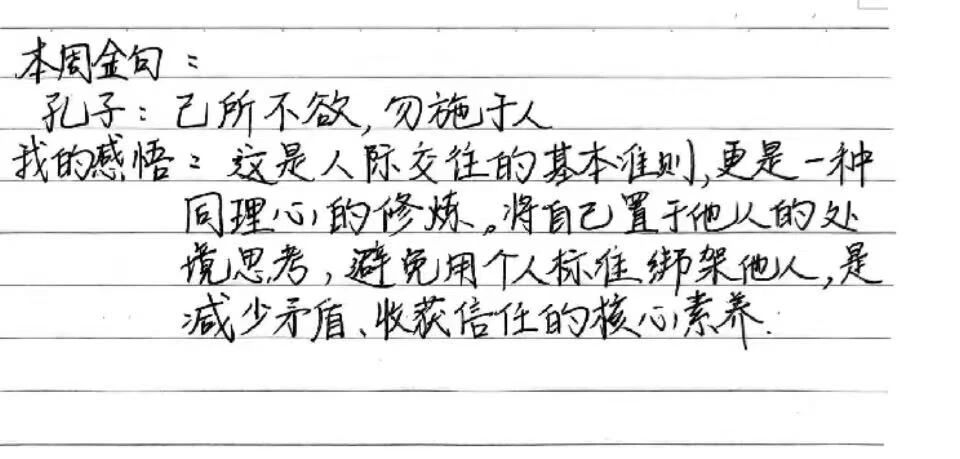 本周金句：
孔子：己所不欲，勿施于人
我的感悟：这是人际交往的基本准则，更是一种
同理心的修炼。将自己置于他人的处
境思考，避免用个人标准绑架他人，是
减少矛盾、收获信任的核心素养.